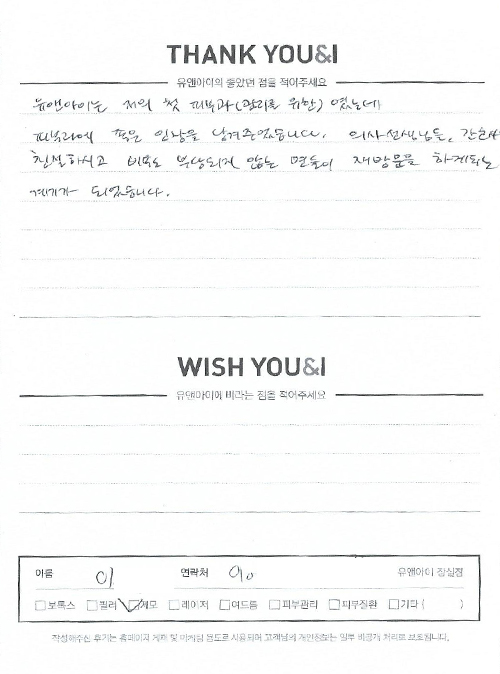 THANK YOU&I
유앤아이의 좋았던 점을 적어주세요
유앤아이는 저의 첫 피부과(관리를 위한) 였는데
피부과에 좋은 인상을 남겨주었습니다. 의사선생님들, 간호사
친절하시고 비용도 부담되지 않는 면들이 재방문을 하게되는
계기가 되었습니다.
WISH YOU&I
유앤아이에 바라는 점을 적어주세요
이름 이 연락처 90 유앤아이 잠실점
보톡스 필러 제모 레이저 여드름 피부관리 피부질환 기타 ( )
작성해주신 후기는 홈페이지 게재 및 마케팅 용도로 사용되며 고객님의 개인정보는 일부 비공개 처리로 보호됩니다.